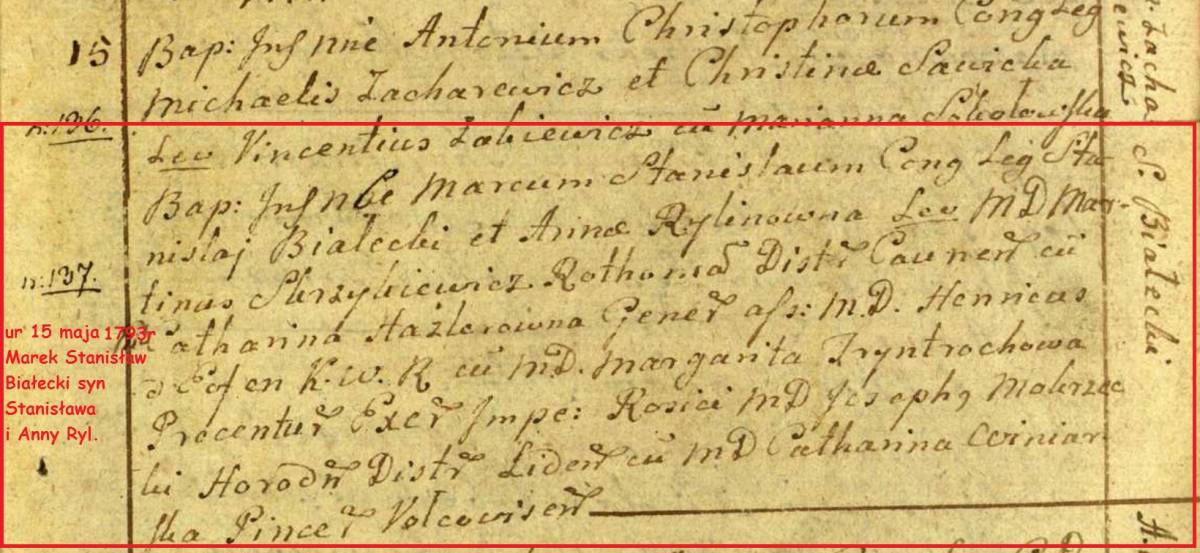 15
Bap: Jnf nne Antonium Christophorum Cong Leg
Michaelis Zacharewicz et Christinæ Sawicka
n: 136.
Lev Vincentius Zabiewicz cū Marianna Sokołowska
Bap: Jnf noe Marcum Stanislaum Cong Leg Sta
nislaj Białecki et Annæ Rylinowna Lev MD Mar-
n: 137.
tinus Skrzykiewicz Rothomā Distr̃ Caunen̄ cū
Catharina Hazlerowna Gener̃ ass: M.D. Henricus
K. W. R cū MD. Margarita Tryntrochowa
Procentur̃ Exer̃ Jmpe: Rosici MD Josephg
ki Horodn̄ Distr̃ Liden̄ cū MD Catharina Winiar
ska Pincer̃ Volcowisen̄
Zacha
ewicz
S. Białecki
ur 15 maja 1793r
Marek Stanisław
Białecki syn
Stanisława
i Anny Ryl.